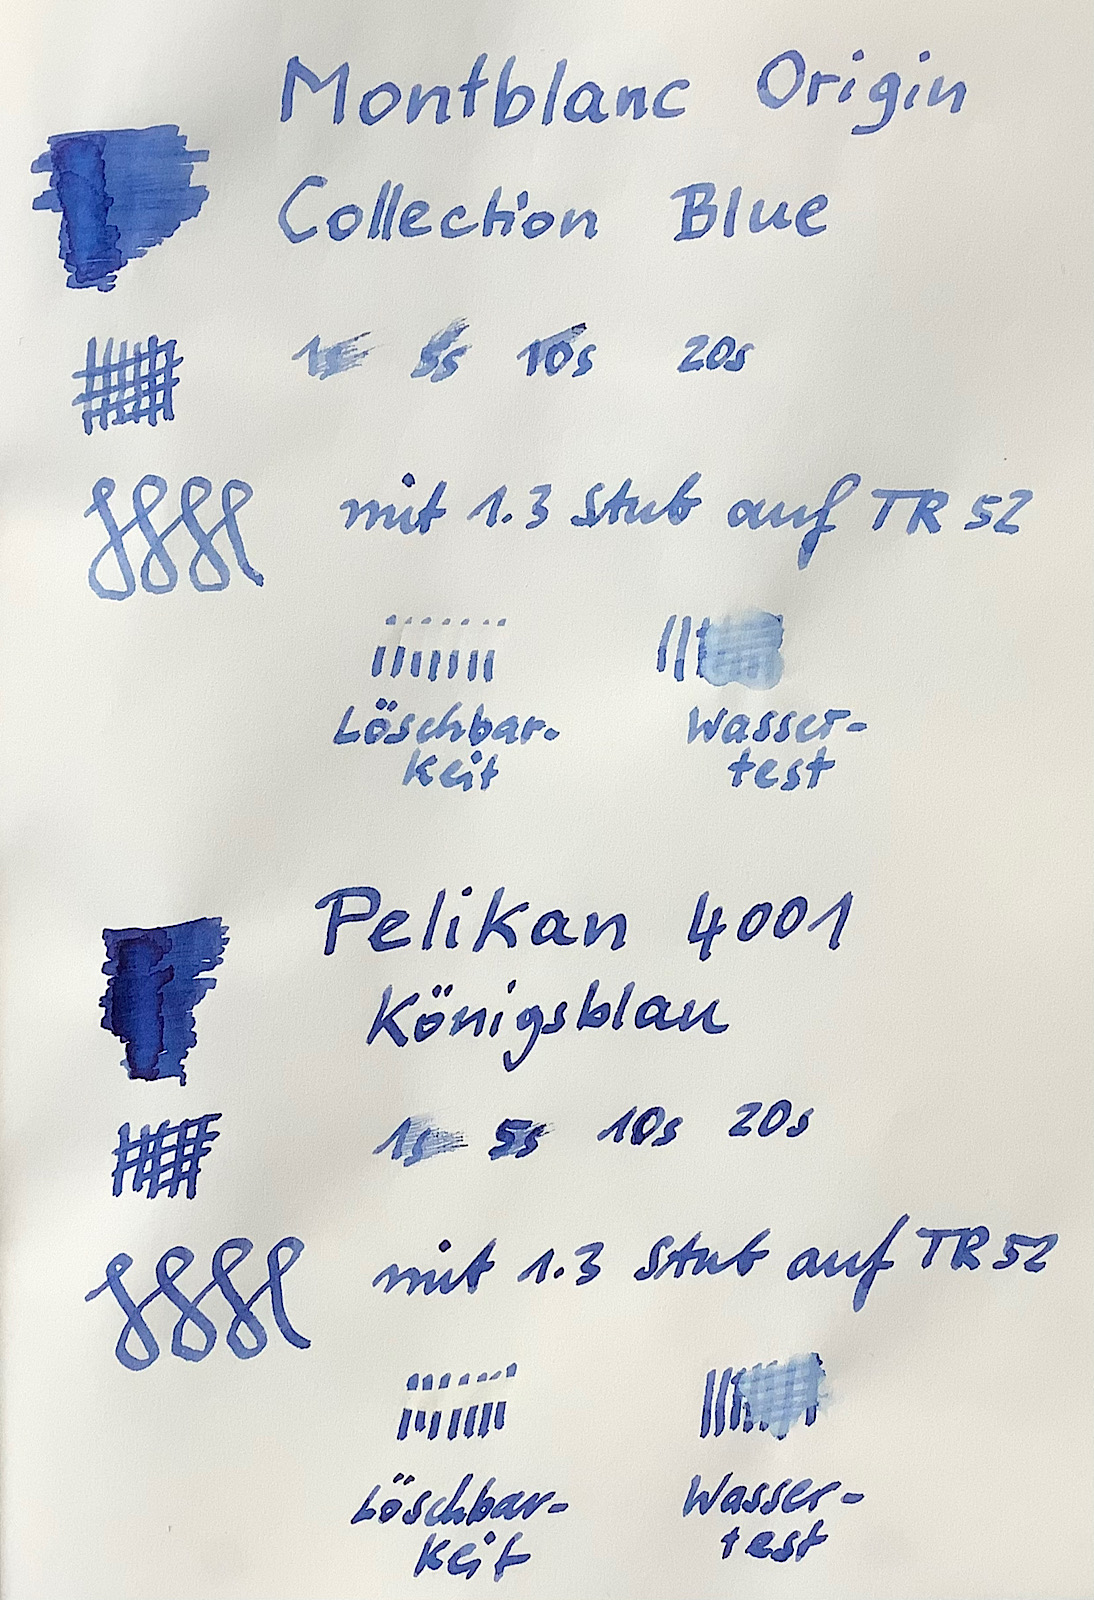 Montblanc Origin
Collection Blue
1s 5s 10s 20s
mit 1.3 Stub auf TR 52
Löschbar-
keit
Wasser-
test
Pelikan 4001
Königsblau
1s 5s 10s 20s
mit 1.3 Stub auf TR 52
Löschbar-
keit
Wasser-
test